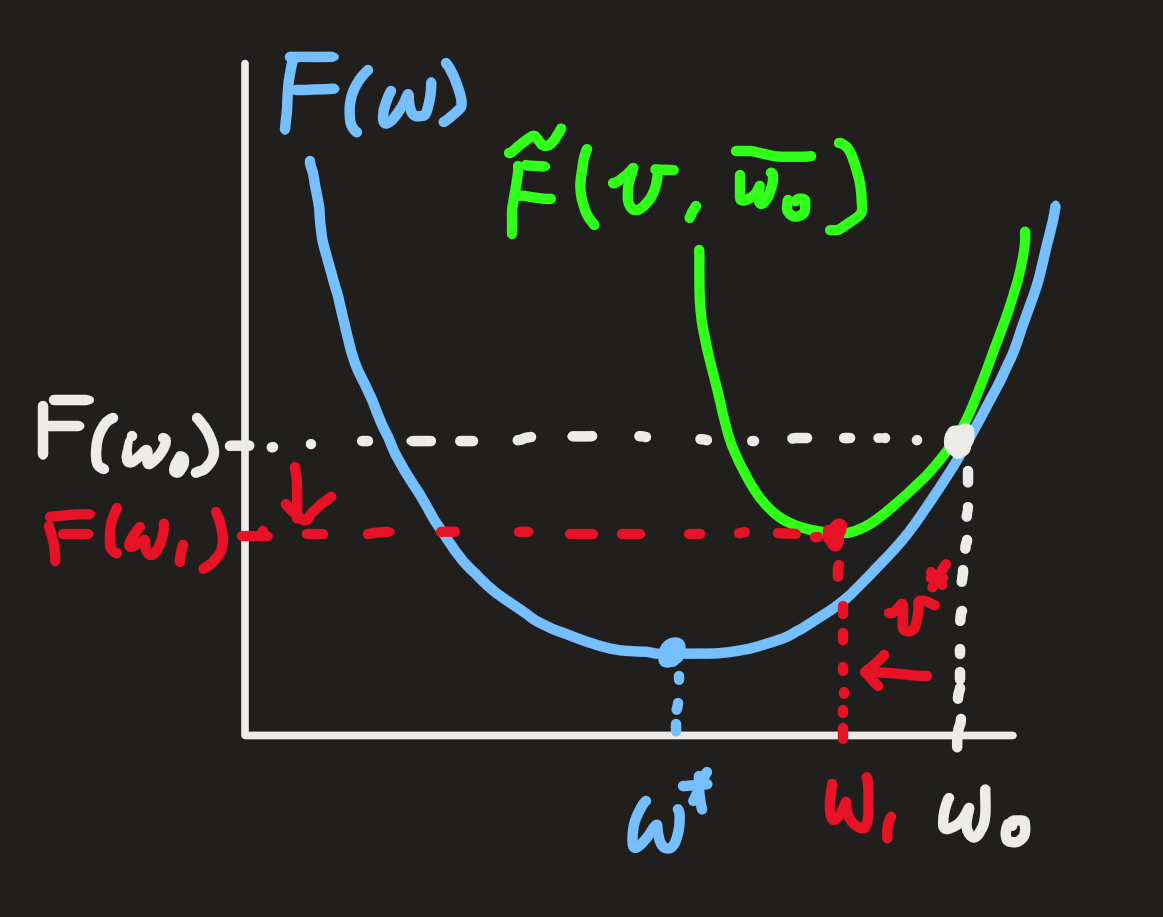 F(w)
F̃(v, w̅₀)
F(w₀)
F(w₁)
v*
w*
w₁
w₀